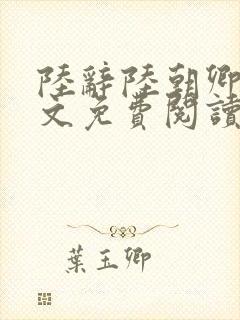 陸辭陸朝卿
文免費閱讀
葉玉卿